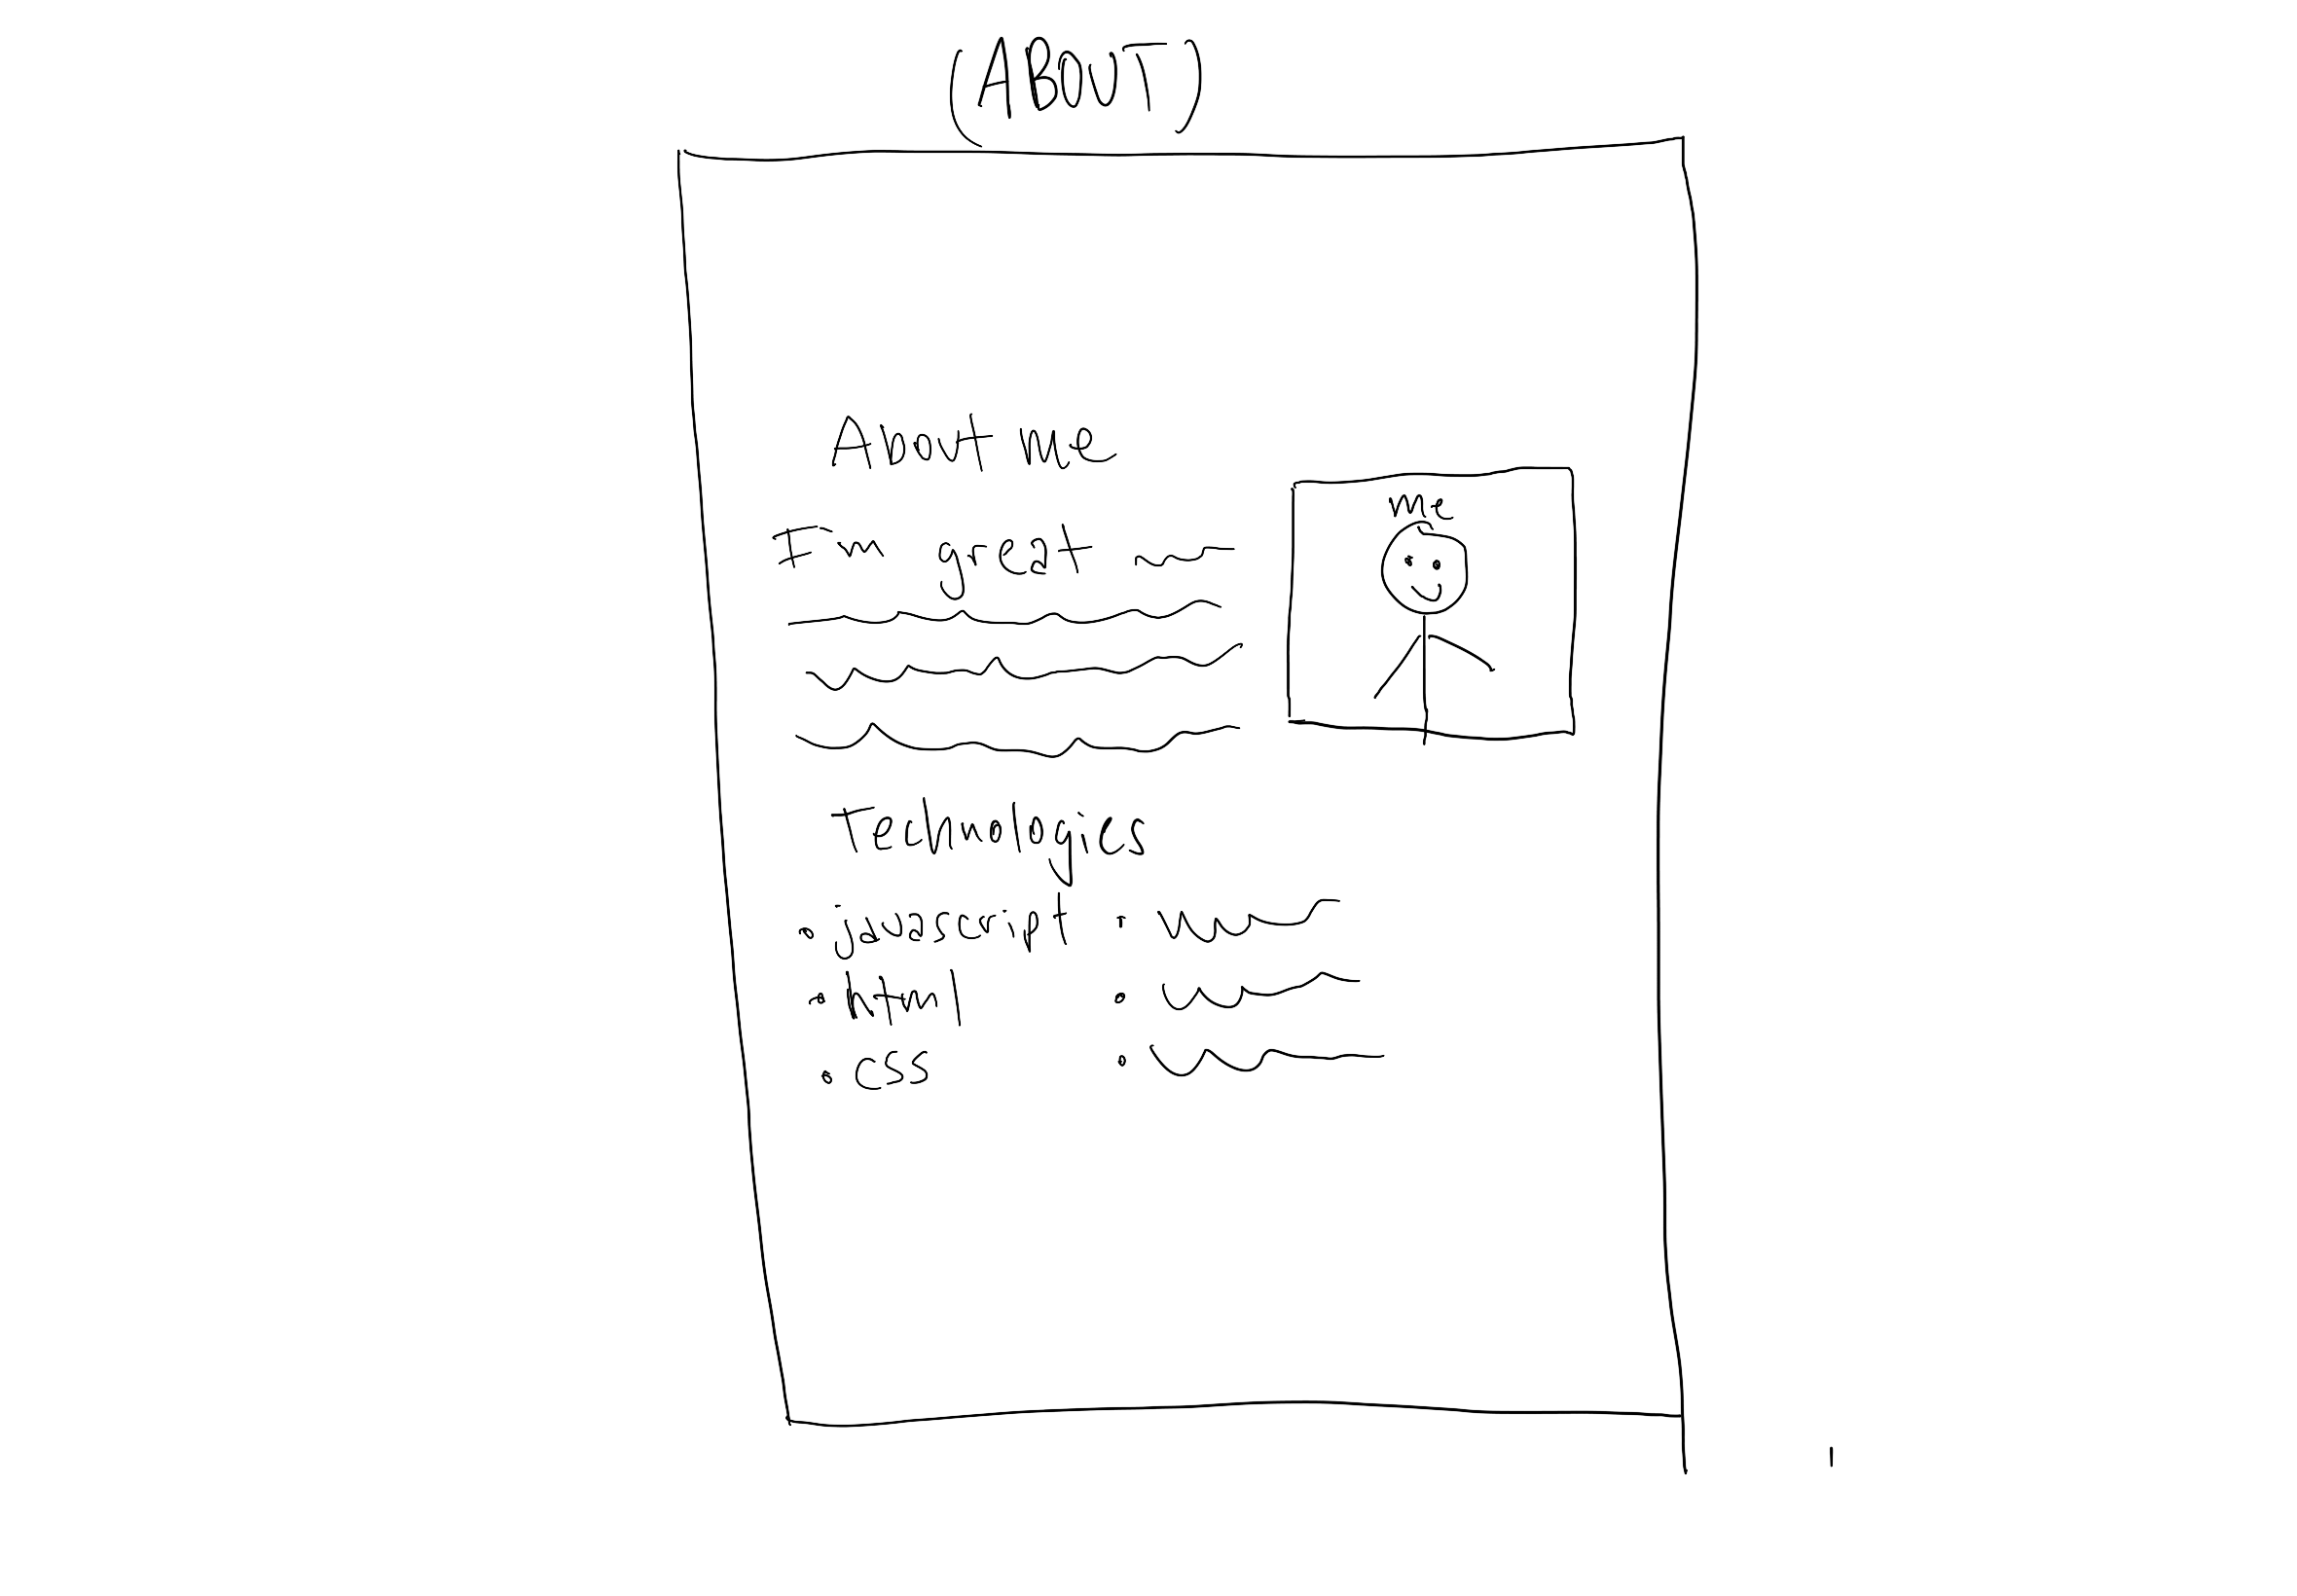 (ABOUT)
About me
me
I'm great
Technologies
• javascript •
• html •
• css •